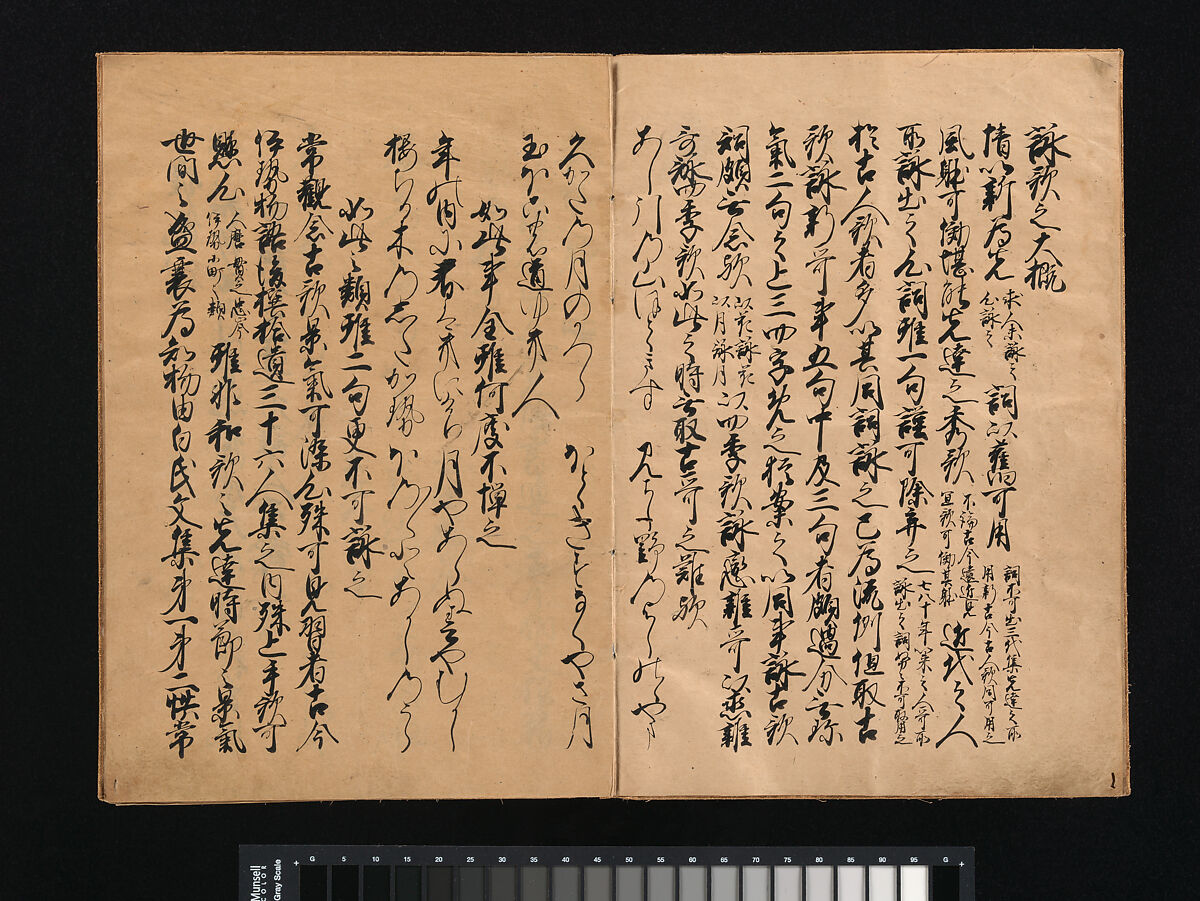 詠歌之大概
情以新為先 求人未詠之心詠之 詞以舊可用 詞不可出三代集先達之所用新古今古人歌同可用之
風躰可効堪能先達之秀歌 不論古今遠近見宜歌可効其躰 近代之人
所詠出之心詞雖一句謹可除弃之 七八十年以来之人哥所詠出之詞努々不可取用之
於古人歌者多以其同詞詠之已為流例但取古
歌詠新哥事五句中及三句者頗過分無珍
氣二句之上三四字免之猶案之以同事詠古歌
詞頗無念歟 以花詠花以月詠月 以四季歌詠戀雜哥以戀雜
哥詠四季歌如此之時無取古哥之難歟
あしひきの山ほとゝきす みよし野のよしのゝやま
久かたの月のかつら ほとゝきすなくやさ月
玉ほこの道ゆき人
如此事全雖何度不憚之
年の内に春はきにけり月やあらぬ春やむかし
櫻ちる木のした風 ほの〳〵とあかしのうら
如此之類雖二句更不可詠之
常觀念古歌景氣可染心殊可見習者古今
伊勢物語後撰拾遺三十六人集之内殊上手歌可
懸心 人麿貫之忠岑伊勢小町之類 雖非和歌之先達時節之景氣
世間之盛衰為知物由白氏文集第一第二帙常
Munsell
COLOR
Gray Scale
G 5 10 15 20 25 30 35 40 45 50 55 60 65 70 75 80 85 90 95 G